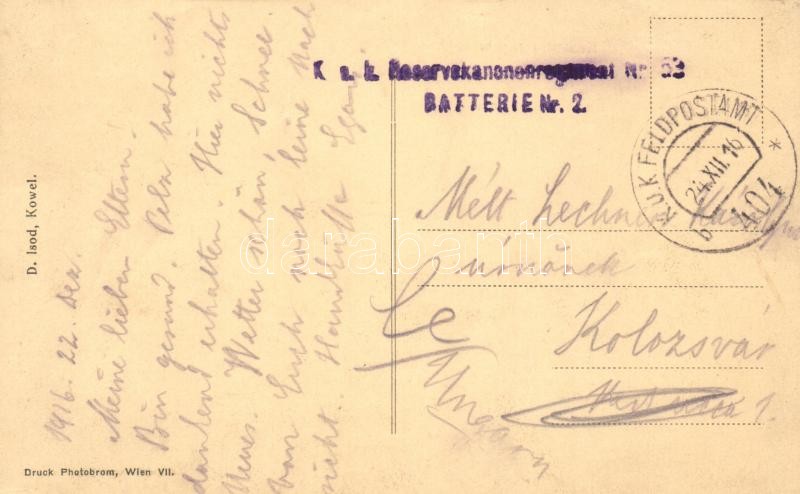 K. u. k. Reservekanonenregiment Nr. 53
BATTERIE Nr. 2.
K.U.K. FELDPOSTAMT
24.XII.16
b 404
1916. 22. Dez.
Meine lieben Eltern!
Bin gesund. Pelz habe ich
dankend erhalten. Hier nichts
Neues. Wetter schön, Schnee.
von Euch noch keine Nach
richt. Handküsse
Mélt Lechner
úrnőnek
Kolozsvár
Ungarn
D. Isod, Kowel.
Druck Photobrom, Wien VII.
darabanth